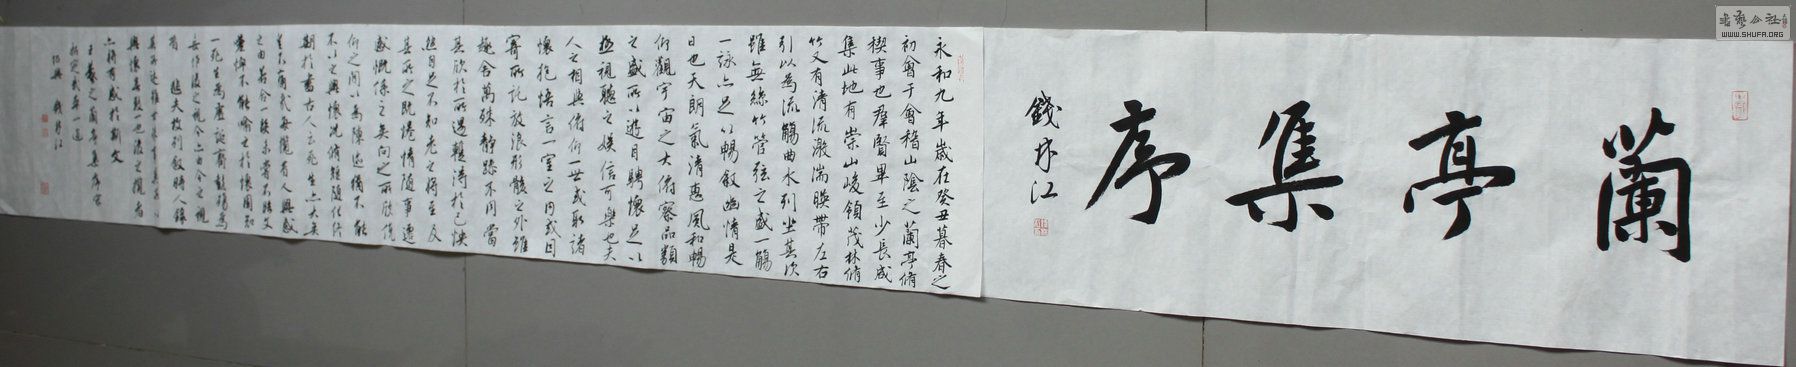 蘭亭集序
錢林江
永和九年歲在癸丑暮春之
初會于會稽山陰之蘭亭脩
禊事也群賢畢至少長咸
集此地有崇山峻領茂林脩
竹又有清流激湍暎帶左右
引以為流觴曲水列坐其次
雖無絲竹管弦之盛一觴
一詠亦足以暢敘幽情是
日也天朗氣清惠風和暢
仰觀宇宙之大俯察品類
之盛所以遊目騁懷足以
極視聽之娛信可樂也夫
人之相與俯仰一世或取諸
懷抱悟言一室之內或因
寄所託放浪形骸之外雖
趣舍萬殊靜躁不同當
其欣於所遇輒得於己怏
然自足不知老之將至及
其所之既惓情隨事遷
感慨係之矣向之所欣俛
仰之間以為陳迹猶不能
不以之興懷況脩短隨化終
期於盡古人云死生亦大矣
豈不痛哉每攬昔人興感
之由若合一契未嘗不臨文
嗟悼不能喻之於懷固知
一死生為虛誕齊彭殤為
妄作後之視今亦由今之視
昔 悲夫故列敘時人錄
其所述雖世殊事異所以
興懷其致一也後之攬者
亦將有感於斯文
王羲之蘭亭集序
一遍
紹興 錢林江
書藝公社
WWW.SHUFA.ORG